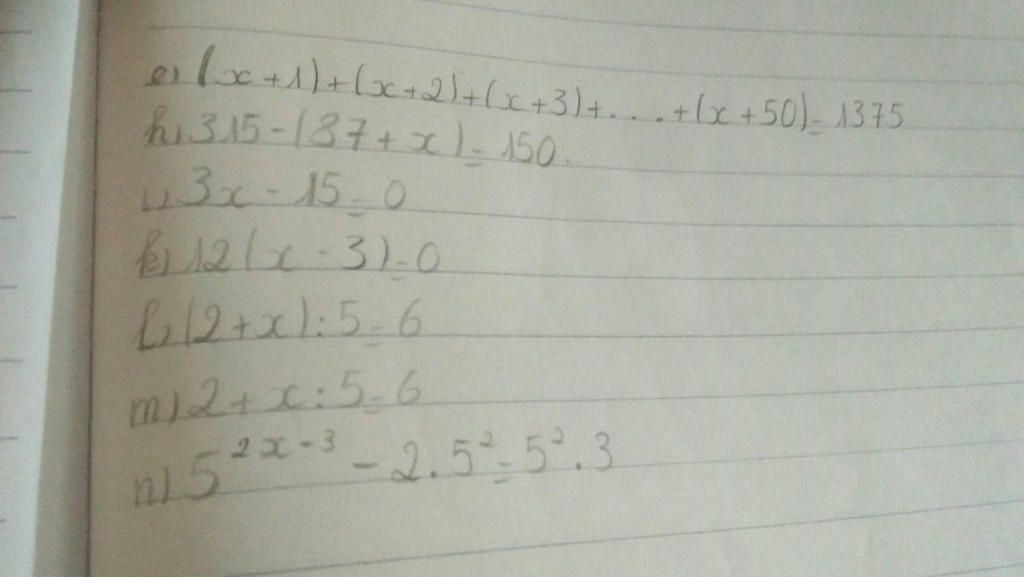 e) (x+1)+(x+2)+(x+3)+....+(x+50)=1375
h) 315-(87+x)=150.
i) 3x-15=0
k) 12(x-3)=0
l) (2+x):5=6
m) 2+x:5=6
n) 5^{2x-3}-2.5²=5².3